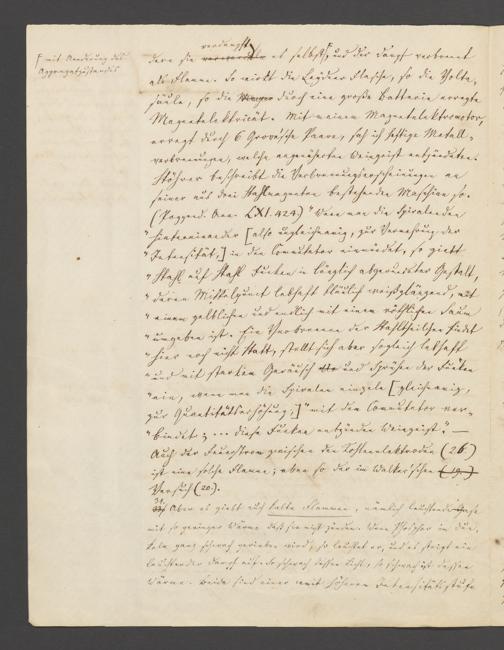 mit Aenderung des
Aggregatzustandes
verdampft
dere sie es selbst, und der Dampf verbrennt
als Flamme. So wirkt die Leydner Flasche, so die Volta-
säule, so die durch eine große Batterie erregte
Magnetelektricität. Mit meinem Magnetelektromotor,
erregt durch 6 Grove'sche Paare, sah ich heftige Metall-
verbrennungen, welche angenäherten Weingeist entzündeten.
Stöhrer beschreibt die Verbrennungserscheinungen an
seiner aus drei Stahlmagneten bestehenden Maschine so.
(Poggend. Ann. LXI. 424.) "Wenn man die Spiralenden
"hintereinander [also ungleichnamig, zur Vermehrung der
"Intensität,] in den Commutator einmündet, so giebt
"Stahl auf Stahl Funken in länglich abgerundeter Gestalt,
"deren Mittelpunct lebhaft bläulich weißglänzend, mit
"einem gelblichen und endlich mit einem röthlichen Saum
"umgeben ist. Ein Verbrennen der Stahltheilchen findet
"hier noch nicht statt, stellt sich aber sogleich lebhaft
"und mit starkem Geräusch und Sprühen der Funken
"ein, wenn man die Spiralen einzeln [gleichnamig,
zur Quantitätserhöhung,] "mit dem Commutator ver-
"bindet; ... diese Funken entzünden Weingeist." —
Auch der Feuerstrom zwischen den Kohlenelektroden (26.)
ist eine solche Flamme; eben so der im Walker'schen (19.)
Versuch (20.).
31. Aber es giebt auch kalte Flammen, nämlich leuchtende Gase
mit so geringer Wärme daß sie nicht zünden. Wenn Phosphor im Dun-
keln ganz schwach gerieben wird, so leuchtet er, und es steigt ein
leuchtender Dampf auf. So schwach dessen Licht, so schwach ist dessen
Wärme. Beide sind einer höheren Intensitätsstufe